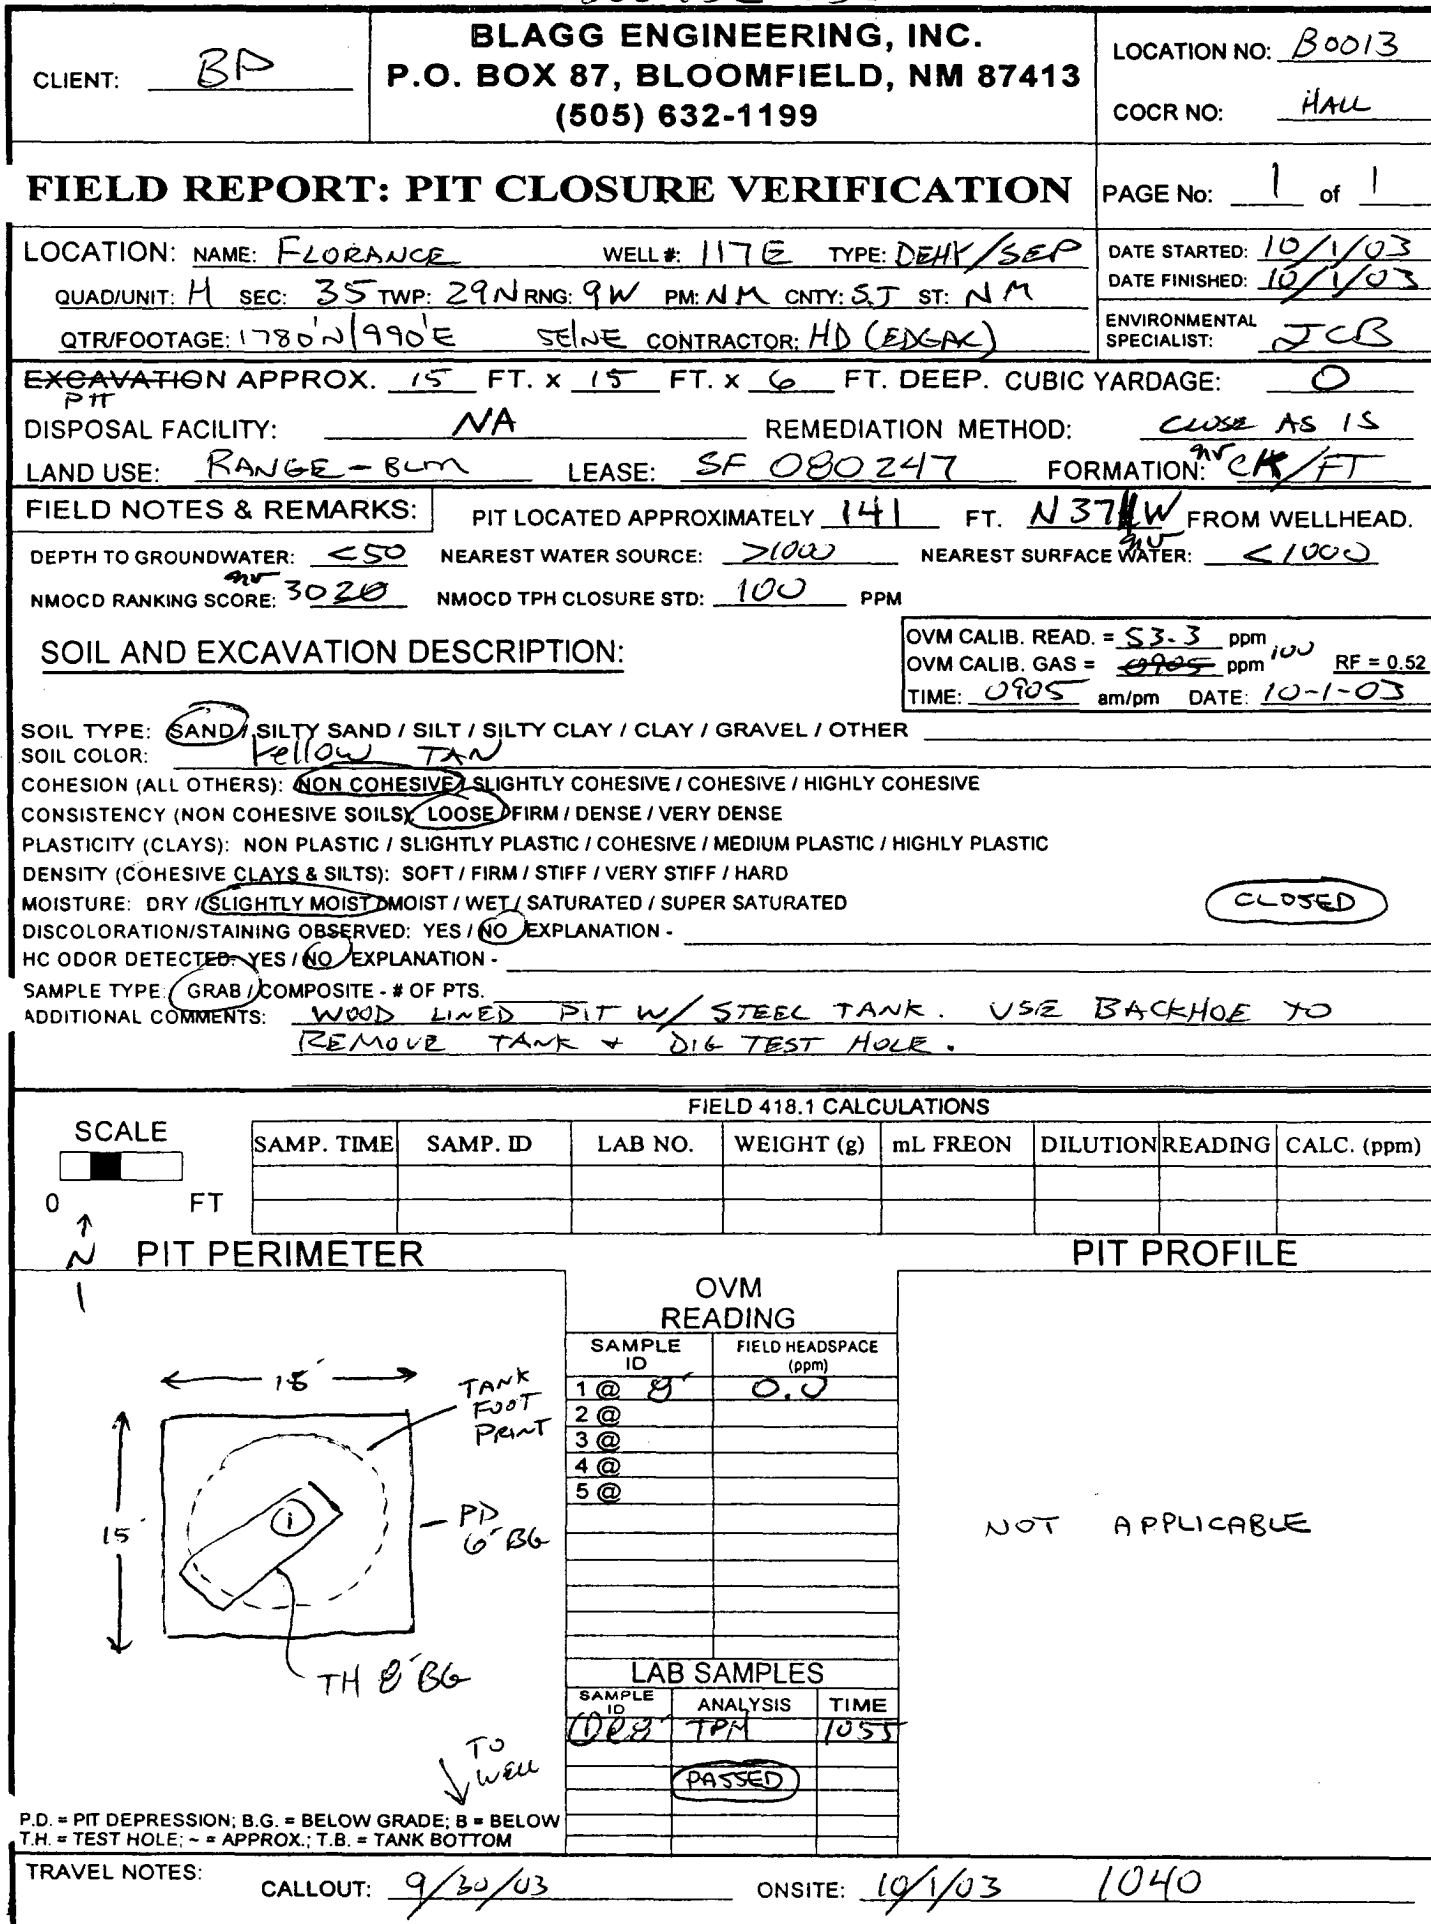 BLAGG ENGINEERING, INC.
P.O. BOX 87, BLOOMFIELD, NM 87413
(505) 632-1199
CLIENT: BP
LOCATION NO: B0013
COCR NO: HALL
FIELD REPORT: PIT CLOSURE VERIFICATION
PAGE No: 1 of 1
LOCATION: NAME: FLORANCE WELL #: 117E TYPE: DEHY/SEP
DATE STARTED: 10/1/03
DATE FINISHED: 10/1/03
QUAD/UNIT: H SEC: 35 TWP: 29N RNG: 9W PM: NM CNTY: SJ ST: NM
QTR/FOOTAGE: 1780'N/990'E SE/NE CONTRACTOR: HD (EDGAR)
ENVIRONMENTAL
SPECIALIST: JCB
EXCAVATION APPROX. 15 FT. x 15 FT. x 6 FT. DEEP. CUBIC YARDAGE: 0
PIT
DISPOSAL FACILITY: NA REMEDIATION METHOD: CLOSE AS IS
LAND USE: RANGE - BLM LEASE: SF 080247 FORMATION: CK/FT
FIELD NOTES & REMARKS: PIT LOCATED APPROXIMATELY 141 FT. N37W FROM WELLHEAD.
DEPTH TO GROUNDWATER: <50 NEAREST WATER SOURCE: >1000 NEAREST SURFACE WATER: <1000
NMOCD RANKING SCORE: 30 20 NMOCD TPH CLOSURE STD: 100 PPM
SOIL AND EXCAVATION DESCRIPTION:
OVM CALIB. READ. = 53.3 ppm
OVM CALIB. GAS = 0905 ppm 100 RF = 0.52
TIME: 0905 am/pm DATE: 10-1-03
SOIL TYPE: SAND / SILTY SAND / SILT / SILTY CLAY / CLAY / GRAVEL / OTHER
SOIL COLOR: Yellow TAN
COHESION (ALL OTHERS): NON COHESIVE / SLIGHTLY COHESIVE / COHESIVE / HIGHLY COHESIVE
CONSISTENCY (NON COHESIVE SOILS): LOOSE / FIRM / DENSE / VERY DENSE
PLASTICITY (CLAYS): NON PLASTIC / SLIGHTLY PLASTIC / COHESIVE / MEDIUM PLASTIC / HIGHLY PLASTIC
DENSITY (COHESIVE CLAYS & SILTS): SOFT / FIRM / STIFF / VERY STIFF / HARD
MOISTURE: DRY / SLIGHTLY MOIST / MOIST / WET / SATURATED / SUPER SATURATED
CLOSED
DISCOLORATION/STAINING OBSERVED: YES / NO EXPLANATION -
HC ODOR DETECTED: YES / NO EXPLANATION -
SAMPLE TYPE: GRAB / COMPOSITE - # OF PTS.
ADDITIONAL COMMENTS: WOOD LINED PIT W/ STEEL TANK. USE BACKHOE TO
REMOVE TANK + DIG TEST HOLE.
FIELD 418.1 CALCULATIONS
SCALE
SAMP. TIME SAMP. ID LAB NO. WEIGHT (g) mL FREON DILUTION READING CALC. (ppm)
0 FT
N
PIT PERIMETER
PIT PROFILE
OVM
READING
SAMPLE
ID
FIELD HEADSPACE
(ppm)
1 @ 8' 0.0
2 @
3 @
4 @
5 @
15'
TANK
FOOT
PRINT
15'
PD
6' BG
TH 8' BG
TO
WELL
NOT APPLICABLE
LAB SAMPLES
SAMPLE
ID
ANALYSIS TIME
①@8' TPH 1055
PASSED
P.D. = PIT DEPRESSION; B.G. = BELOW GRADE; B = BELOW
T.H. = TEST HOLE; ~ = APPROX.; T.B. = TANK BOTTOM
TRAVEL NOTES: CALLOUT: 9/30/03 ONSITE: 10/1/03 1040